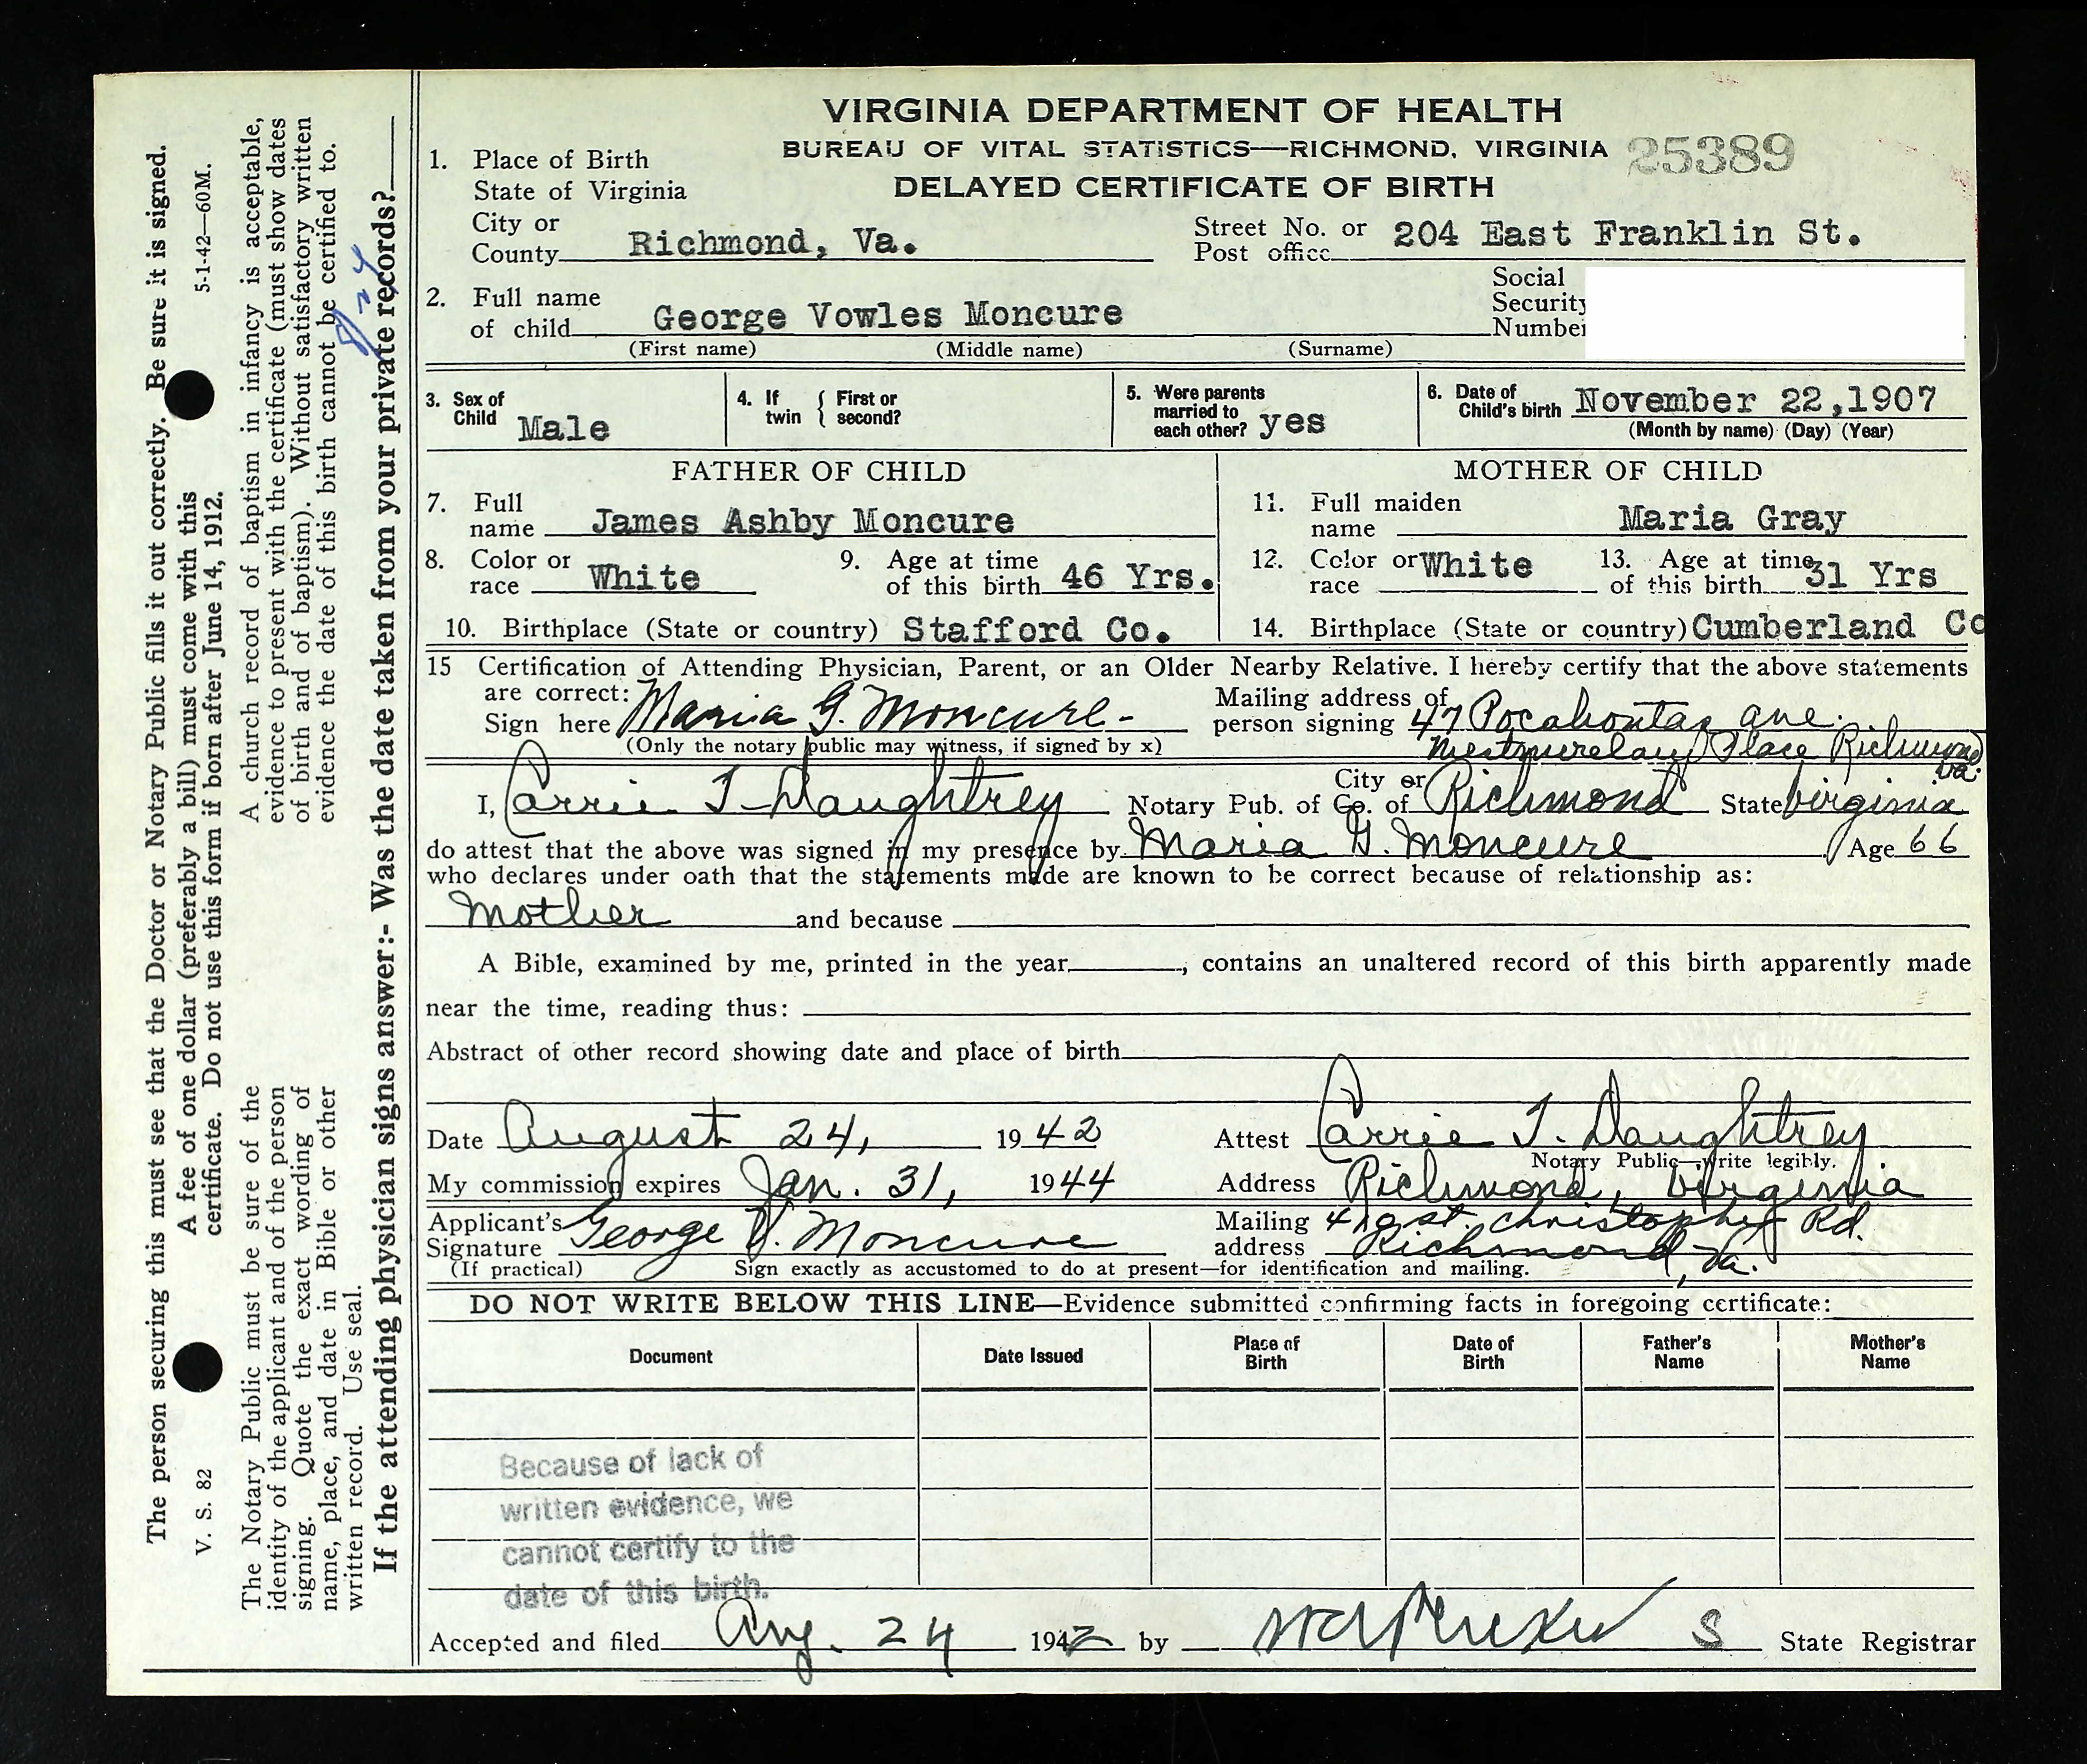 VIRGINIA DEPARTMENT OF HEALTH
BUREAU OF VITAL STATISTICS—RICHMOND, VIRGINIA 25389
DELAYED CERTIFICATE OF BIRTH
1. Place of Birth
State of Virginia
City or County Richmond, Va. Street No. or Post office 204 East Franklin St.
Social Security Number
2. Full name of child George Vowles Moncure
(First name) (Middle name) (Surname)
3. Sex of Child Male 4. If twin { First or second? 5. Were parents married to each other? yes 6. Date of Child's birth November 22,1907
(Month by name) (Day) (Year)
FATHER OF CHILD MOTHER OF CHILD
7. Full name James Ashby Moncure 11. Full maiden name Maria Gray
8. Color or race White 9. Age at time of this birth 46 Yrs. 12. Color or race White 13. Age at time of this birth 31 Yrs
10. Birthplace (State or country) Stafford Co. 14. Birthplace (State or country) Cumberland Co
15 Certification of Attending Physician, Parent, or an Older Nearby Relative. I hereby certify that the above statements
are correct:
Sign here Maria G. Moncure- Mailing address of person signing 47 Pocahontas ave.
(Only the notary public may witness, if signed by x) Place Richmond Va.
I, Carrie T. Daughtrey Notary Pub. of City or Co. of Richmond State Virginia
do attest that the above was signed in my presence by Maria G. Moncure Age 66
who declares under oath that the statements made are known to be correct because of relationship as:
Mother and because
A Bible, examined by me, printed in the year , contains an unaltered record of this birth apparently made
near the time, reading thus:
Abstract of other record showing date and place of birth
Date August 24, 1942 Attest Carrie T. Daughtrey
Notary Public—write legibly.
My commission expires Jan. 31, 1944 Address Richmond, Virginia
Applicant's Signature George V. Moncure Mailing address St. Christopher Rd.
Richmond, Va.
(If practical) Sign exactly as accustomed to do at present—for identification and mailing.
DO NOT WRITE BELOW THIS LINE—Evidence submitted confirming facts in foregoing certificate:
Document Date Issued Place of Birth Date of Birth Father's Name Mother's Name
Because of lack of
written evidence, we
cannot certify to the
date of this birth.
Accepted and filed Aug. 24 1942 by S State Registrar
The person securing this must see that the Doctor or Notary Public fills it out correctly. Be sure it is signed.
V. S. 82 A fee of one dollar (preferably a bill) must come with this 5-1-42—60M.
certificate. Do not use this form if born after June 14, 1912.
The Notary Public must be sure of the
identity of the applicant and of the person
signing. Quote the exact wording of
name, place, and date in Bible or other
written record. Use seal.
A church record of baptism in infancy is acceptable,
evidence to present with the certificate (must show dates
of birth and of baptism). Without satisfactory written
evidence the date of this birth cannot be certified to.
8-24
If the attending physician signs answer:- Was the date taken from your private records?